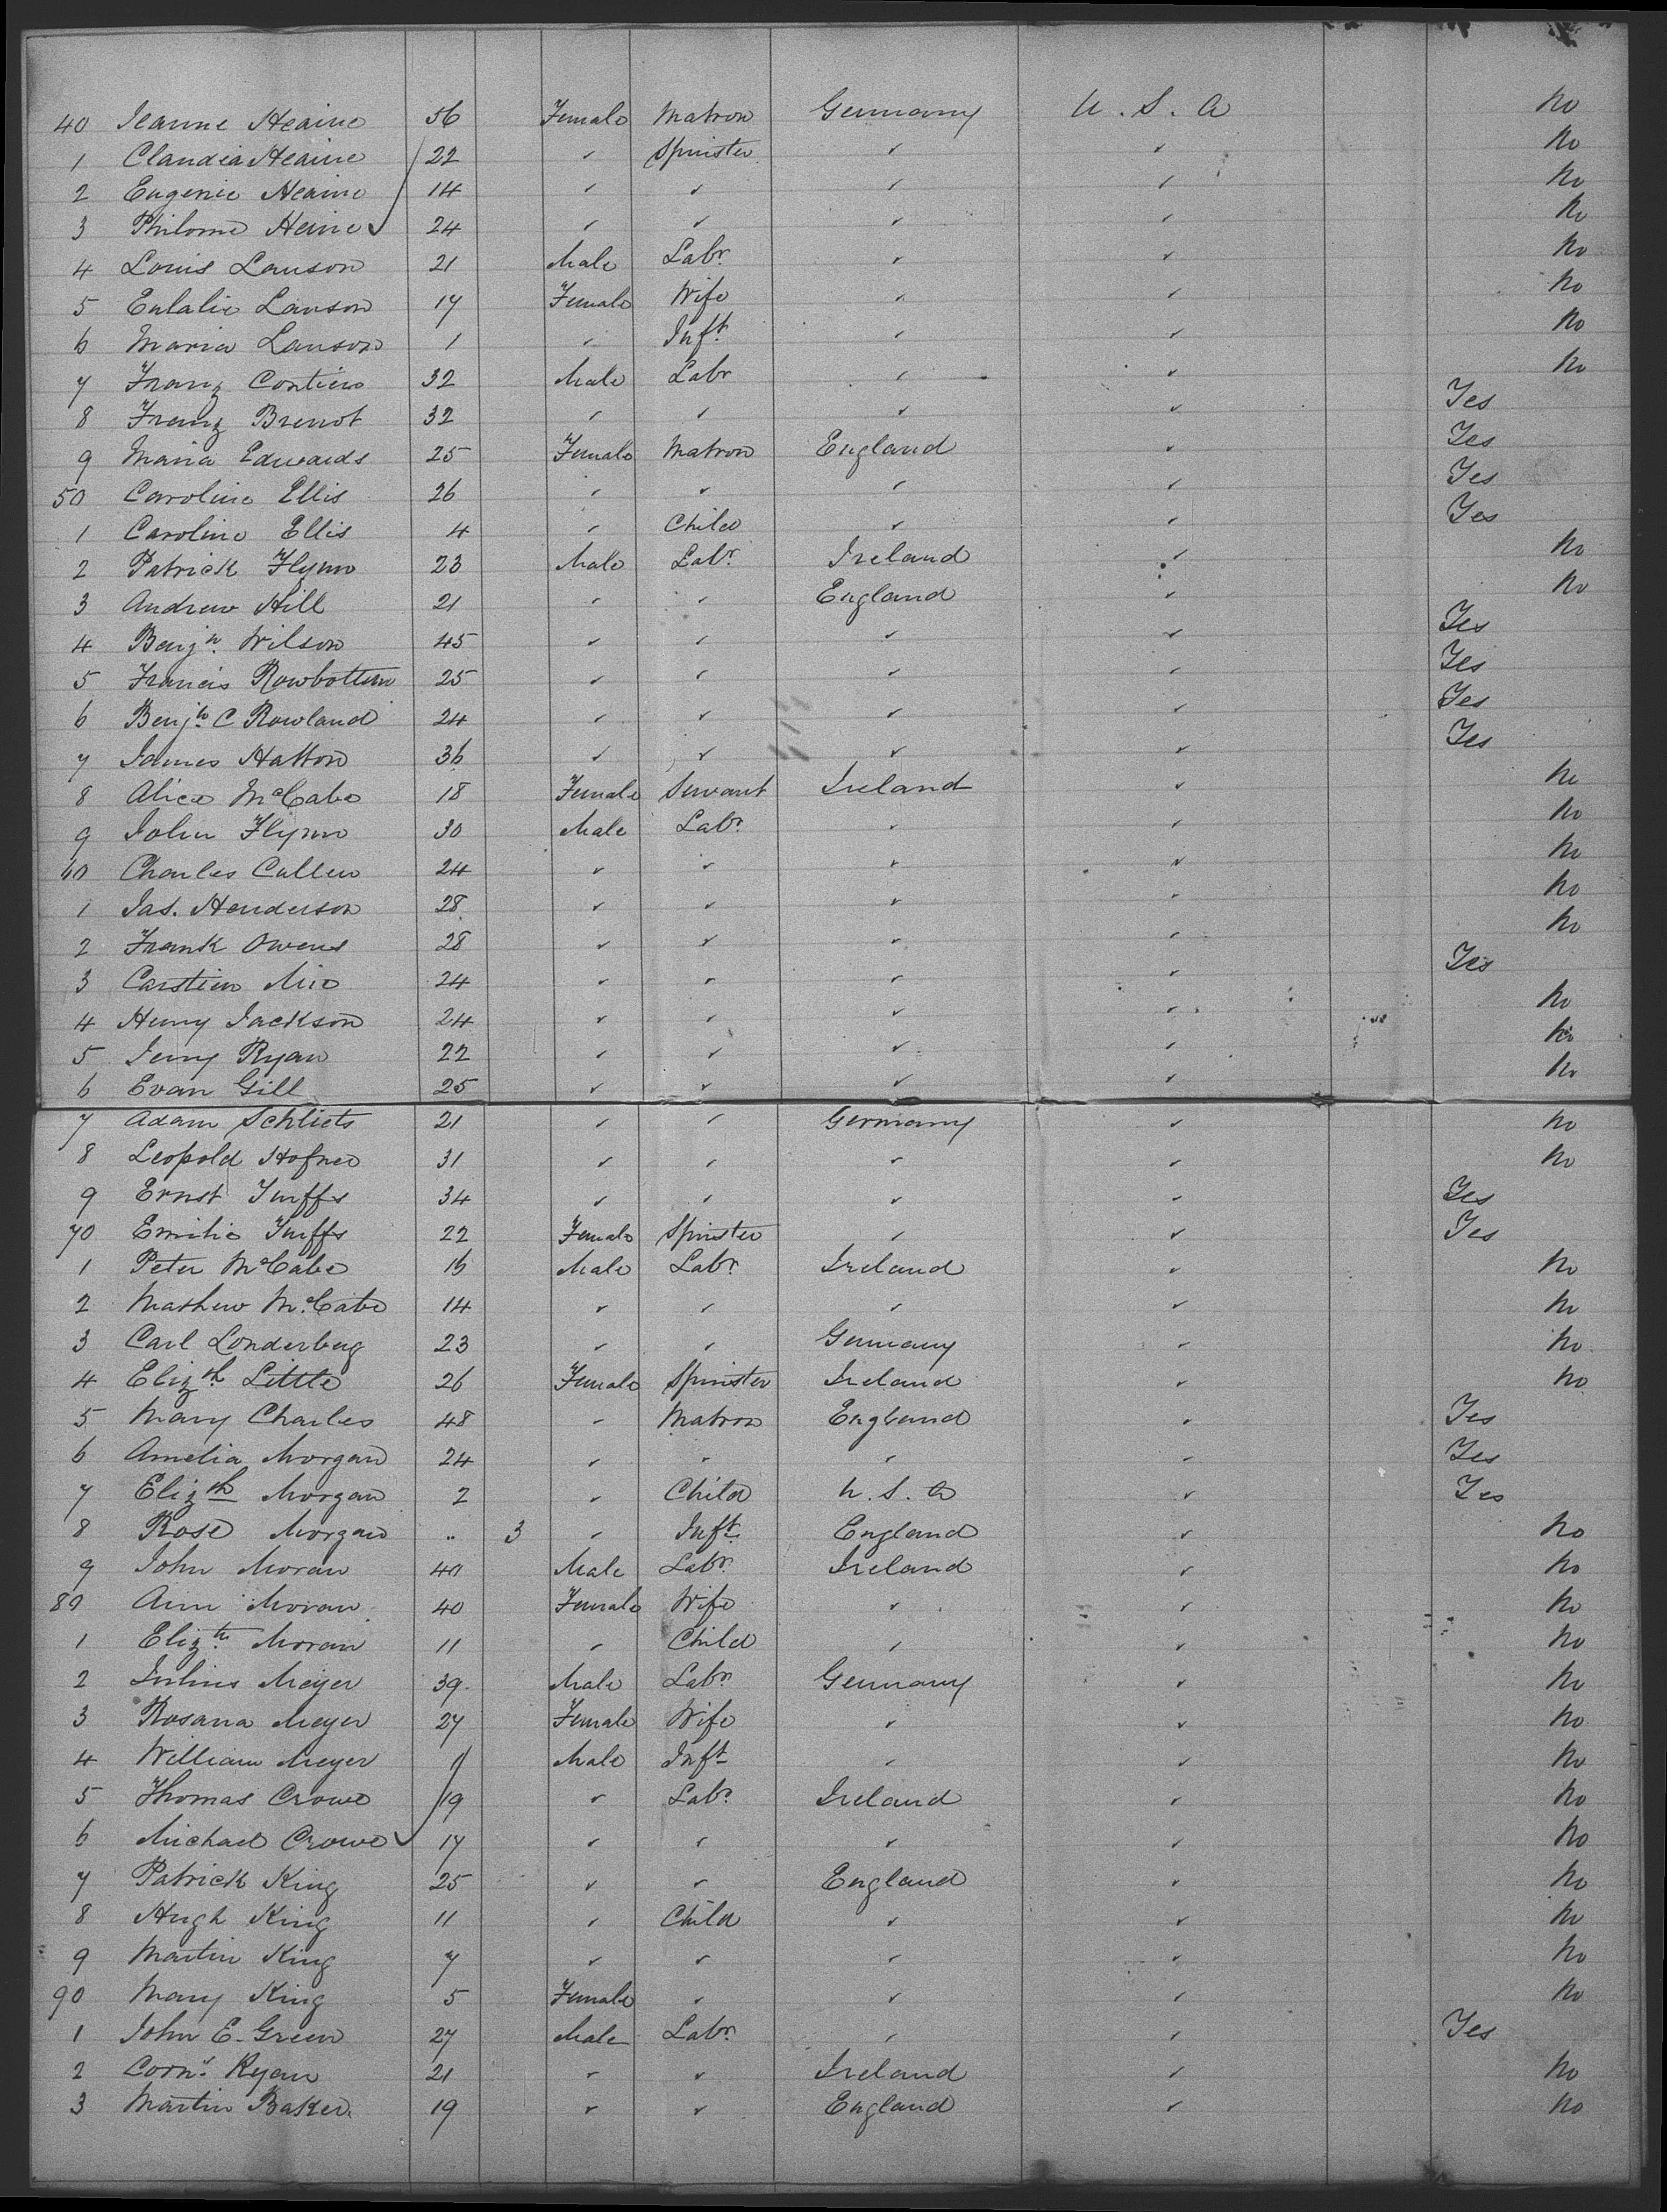 40 Jeanne Heaine 56 Female Matron Germany U.S.A No
1 Claudia Heaine 22 " Spinster " " No
2 Eugenie Heaine 14 " " " " No
3 Philome Heine 24 " " " " No
4 Louis Lanson 21 Male Labr. " " No
5 Eulalie Lanson 17 Female Wife " " No
6 Maria Lanson 1 " Inft. " " No
7 Franz Contien 32 Male Labr " " No
8 Franz Brenot 32 " " " " Yes
9 Maria Edwards 25 Female Matron England " Yes
50 Caroline Ellis 26 " " " " Yes
1 Caroline Ellis 4 " Child " " Yes
2 Patrick Flynn 23 Male Labr. Ireland " No
3 Andrew Hill 21 " " England " No
4 Benjn. Wilson 45 " " " " Yes
5 Francis Rowbottem 25 " " " " Yes
6 Benjn. C Rowland 24 " " " " Yes
7 James Hatton 36 " " " " Yes
8 Alice McCabe 18 Female Servant Ireland " No
9 John Flynn 30 Male Labr. " " No
60 Charles Cullen 24 " " " " No
1 Jas. Henderson 28 " " " " No
2 Frank Owens 28 " " " " No
3 Carstien 24 " " " " Yes
4 Henry Jackson 24 " " " " No
5 Jerry Ryan 22 " " " " No
6 Evan Gill 25 " " " " No
7 Adam Schliets 21 " " Germany " No
8 Leopold Hofner 31 " " " " No
9 Ernst Turffs 34 " " " " Yes
70 Emilie Turffs 22 Female Spinster " " Yes
1 Peter McCabe 16 Male Labr. Ireland " No
2 Mathew McCabe 14 " " " " No
3 Carl Londerberg 23 " " Germany " No
4 Elizth. Little 26 Female Spinster Ireland " No
5 Mary Charles 48 " Matron England " Yes
6 Amelia Morgan 24 " " " " Yes
7 Elizth Morgan 2 " Child U.S.A " Yes
8 Rose Morgan .. 3 " Inft. England " No
9 John Moran 40 Male Labr. Ireland " No
80 Ann Moran 40 Female Wife " " No
1 Elizth. Moran 11 " Child " " No
2 Julius Meyer 39 Male Labr. Germany " No
3 Rosana Meyer 27 Female Wife " " No
4 William Meyer 1 Male Inft " " No
5 Thomas Crowe 19 " Labr. Ireland " No
6 Michael Crowe 17 " " " " No
7 Patrick King 25 " " England " No
8 Hugh King 11 " Child " " No
9 Martin King 7 " " " " No
90 Mary King 5 Female " " " No
1 John E. Green 27 Male Labr. " " Yes
2 Corns. Ryan 21 " " Ireland " No
3 Martin Baker 19 " " England " No